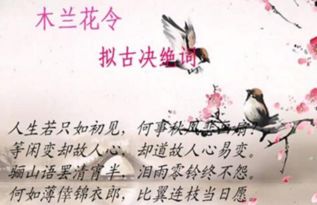 木兰花令
拟古决绝词
人生若只如初见，何事秋风悲画扇。
等闲变却故人心，却道故人心易变。
骊山语罢清宵半，泪雨零铃终不怨。
何如薄倖锦衣郎，比翼连枝当日愿。